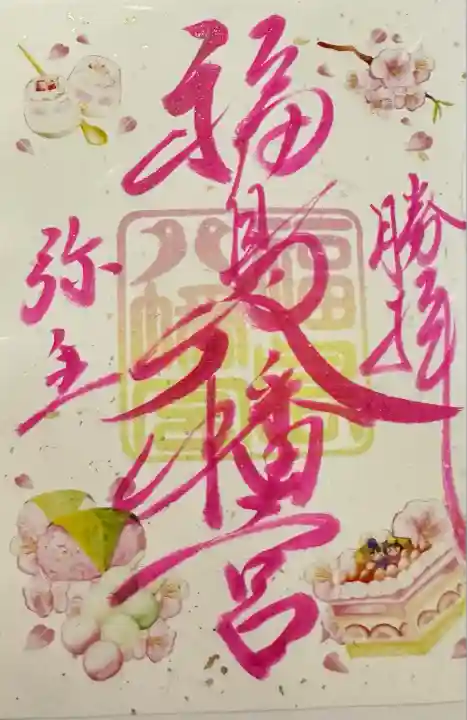 勝拝
福島八幡宮
弥生
福島
八幡宮